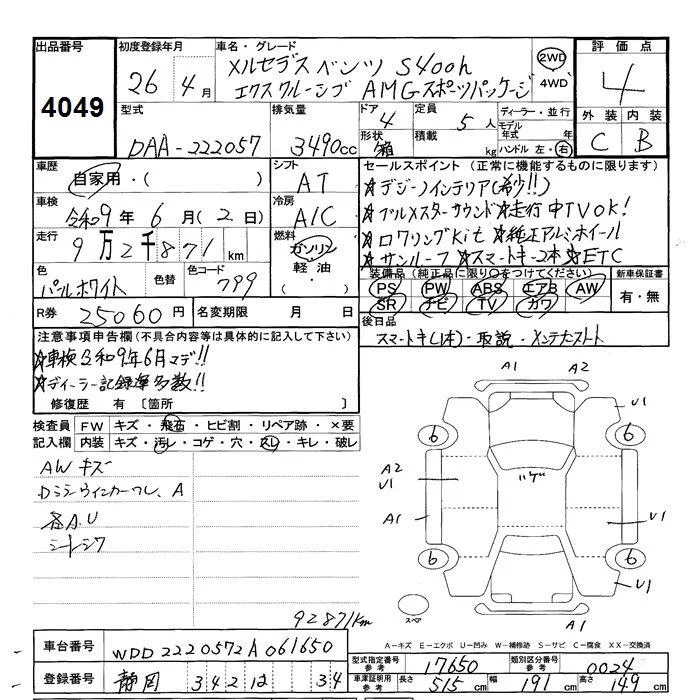 出品番号 初度登録年月 車名・グレード 評価点
4049 26年 4月 メルセデスベンツ S400h 2WD 4
エクスクルーシブ AMGスポーツパッケージ 4WD
型式 排気量 ドア 定員 ディーラー・並行 外装 内装
DAA-222057 3490cc 4 5人 モデル年式 年式 C B
形状 箱 積載 kg ハンドル 左・右
車歴 シフト セールスポイント(正常に機能するものに限ります)
自家用・( ) AT ★デジーノインテリア(希少!!)
車検 冷房 ★ブルメスターサウンド★走行中TVOK!
令和9年 6月(2日) A/C ★ロワリングKit ★純正アルミホイール
走行 燃料 ★サンルーフ ★スマートキー2本 ★ETC
9万2千871km ガソリン・軽油・( )
装備品(純正品に限り○をつけてください) 新車保証書
色 色替 色コード PS PW ABS エアB AW 有・無
パールホワイト 799 SR ナビ TV カワ
R券 25060円 名変期限 月 日 後日品
スマートキー(1本)・取説・メンテナンスノート
注意事項申告欄(不具合内容等は具体的に記入して下さい)
★車検令和9年6月マデ!!
★ディーラー記録簿多数!!
修復歴 有〔箇所 〕
検査員記入欄 FW キズ・飛石・ヒビ割・リペア跡・×要
内装 キズ・汚レ・コゲ・穴・スレ・キレ・破レ
AWキズ
Dミラーウィンカーワレ、A
各A.U
シートシワ
92871km
A1 A2
U1
6 6
A2
U1
A1 U1
6 6
U1
スペア
A1
A-キズ E-エクボ U-凹み W-補修跡 S-サビ C-腐食 XX-交換済
車台番号 WDD2220572A061650
型式指定番号 参考 17650 類別区分番号 参考 0024
登録番号 静岡 342 12 34
車庫証明用 参考 長さ 515cm 幅 191cm 高さ 149cm